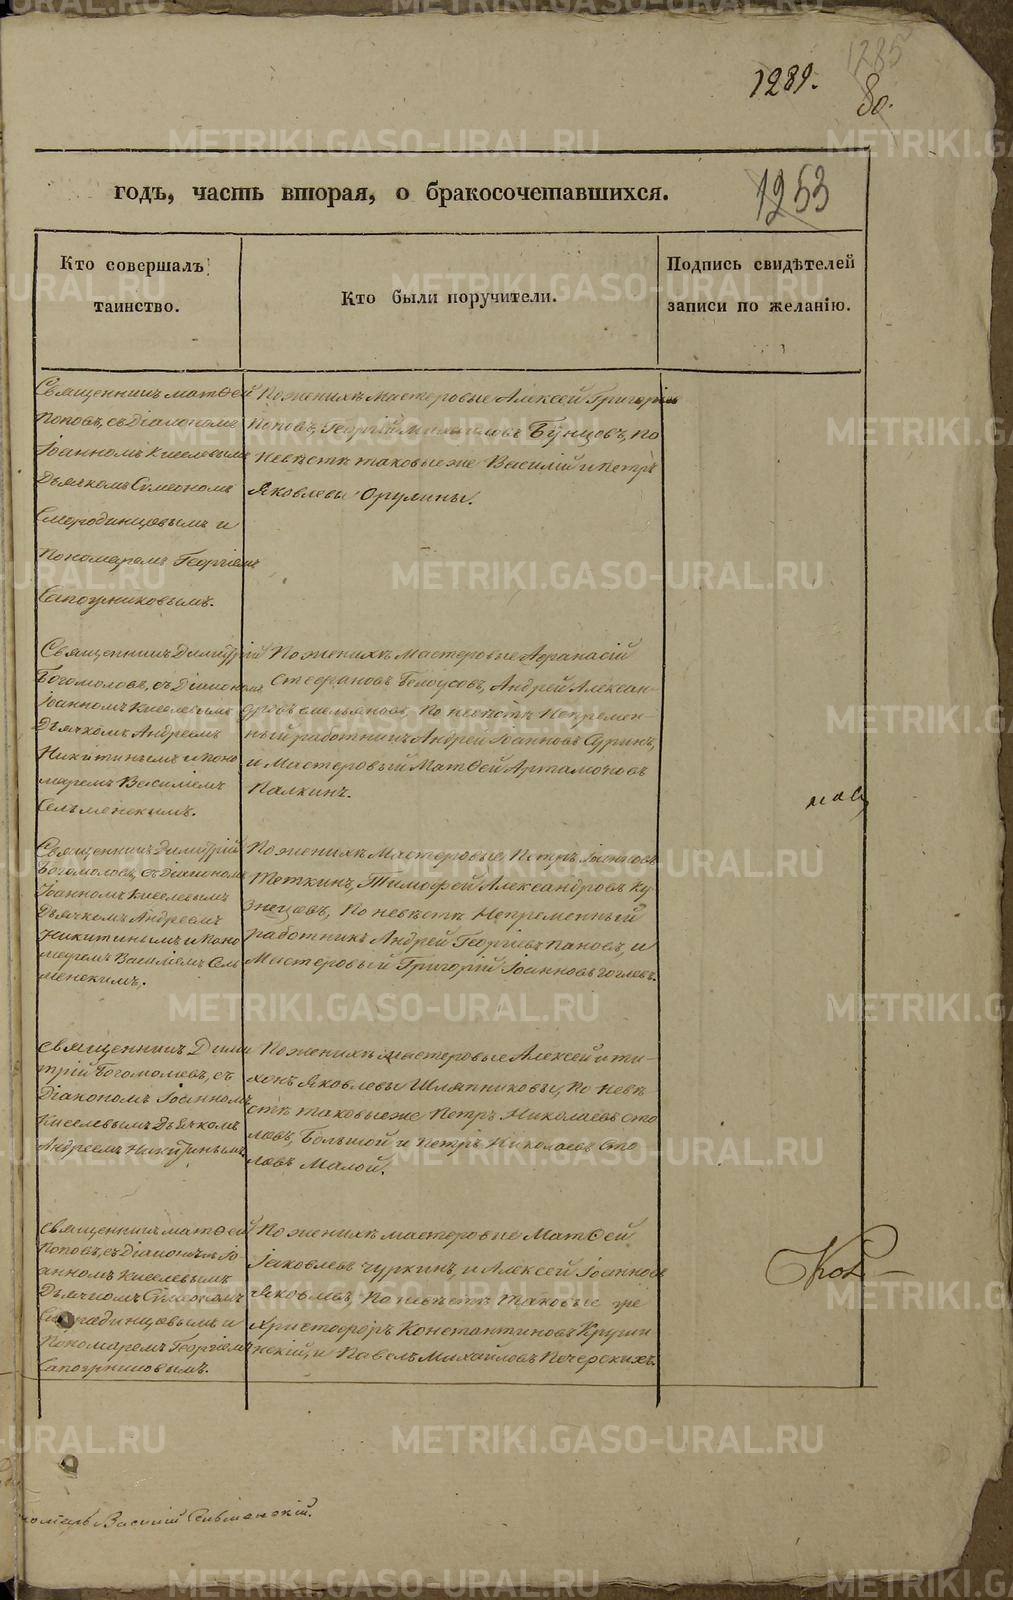 1285
1289.
80.
годъ, часть вторая, о бракосочетавшихся.
1253
Кто совершалъ
таинство.
Кто были поручители.
Подпись свидѣтелей
записи по желанію.
Священникъ Матѳей
Поповъ, съ Діакономъ
Іоанномъ Киселевымъ
Дьячкомъ Симеономъ
Смородинцовымъ и
Пономаремъ Георгіемъ
Сапожниковымъ.
По женихѣ Мастеровые Алексей Григорьевъ
Поповъ, Георгій Бунцовъ, по
невѣстѣ таковые же Василій и Петръ
Яковлевы
Священникъ Димитрій
Богомоловъ, съ Діакономъ
Іоанномъ Киселевымъ
Дьячкомъ Андреемъ
Никитинымъ и Поно
маремъ Василіемъ
Сельменскимъ.
По женихѣ Мастеровые Афанасій
Стефановъ Белоусовъ, Андрей Алексан-
дровъ Емельяновъ, По невѣстѣ Непремен-
ный работникъ Андрей Іоанновъ Суринъ,
и Мастеровый Матѳей Артамоновъ
Палкинъ.
Священникъ Димитрій
Богомоловъ, съ Діакономъ
Іоанномъ Киселевымъ
Дьячкомъ Андреемъ
Никитинымъ и Поно
маремъ Василіемъ Сель
менскимъ.
По женихѣ Мастеровые Петръ Іоанновъ
Теткинъ, Тимофей Александровъ Ку-
знецовъ, По невѣстѣ Непременный
работникъ Андрей Георгіевъ Пановъ, и
Мастеровый Григорій Іоанновъ Гоглевъ.
Священникъ Дими
трій Богомоловъ, съ
Діакономъ Іоанномъ
Киселевымъ Дьячкомъ
Андреемъ Никитинымъ
По женихѣ мастеровые Алексей и Ти-
хонъ Яковлевы Шляпниковы, По невѣ
стѣ таковые же Петръ Николаевъ Сто
ловъ, Большой и Петръ Николаевъ Сто
ловъ Малой.
Священникъ Матѳей
Поповъ, съ Діакономъ Іо-
анномъ Киселевымъ
Дьячкомъ Симеономъ
Смородинцовымъ и
Пономаремъ Георгіемъ
Сапожниковымъ.
По женихѣ мастеровые Матѳей
Іаковлевъ Чуркинъ, и Алексей Іоанновъ
Яковлевъ, По невѣстѣ таковые же
Христофоръ Константиновъ Круши
нскій, и Павелъ Михайловъ Печерскихъ.
Василій Сельменскій.
METRIKI.GASO-URAL.RU